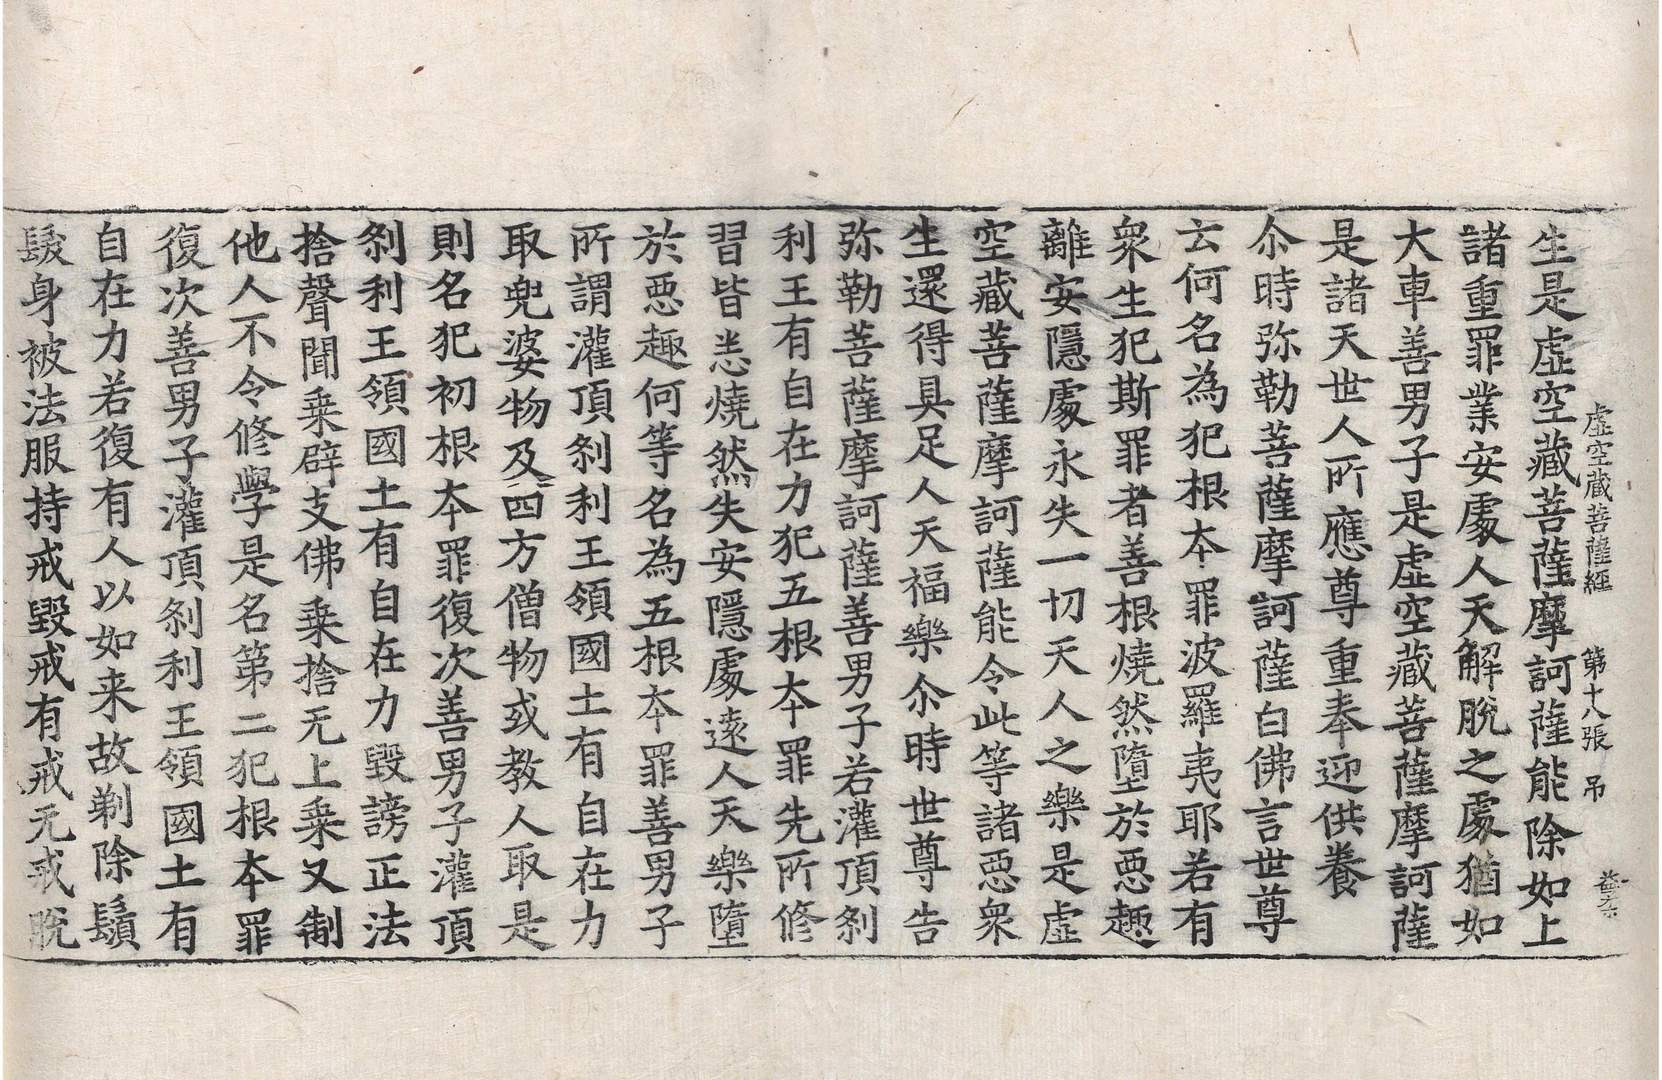 虛空藏菩薩經　第十八張　吊
生是虛空藏菩薩摩訶薩能除如上
諸重罪業安處人天解脫之處猶如
大車善男子是虛空藏菩薩摩訶薩
是諸天世人所應尊重奉迎供養
尒時弥勒菩薩摩訶薩白佛言世尊
云何名為犯根本罪波羅夷耶若有
衆生犯斯罪者善根燒然墮於惡趣
離安隱處永失一切天人之樂是虛
空藏菩薩摩訶薩能令此等諸惡衆
生還得具足人天福樂尒時世尊告
弥勒菩薩摩訶薩善男子若灌頂刹
利王有自在力犯五根本罪先所修
習皆悉燒然失安隱處遠人天樂墮
於惡趣何等名為五根本罪善男子
所謂灌頂刹利王領國土有自在力
取兜婆物及四方僧物或教人取是
則名犯初根本罪復次善男子灌頂
刹利王領國土有自在力毀謗正法
捨聲聞乗辟支佛乗捨无上乗又制
他人不令修學是名第二犯根本罪
復次善男子灌頂刹利王領國土有
自在力若復有人以如来故剃除鬚
髮身被法服持戒毀戒有戒无戒脫